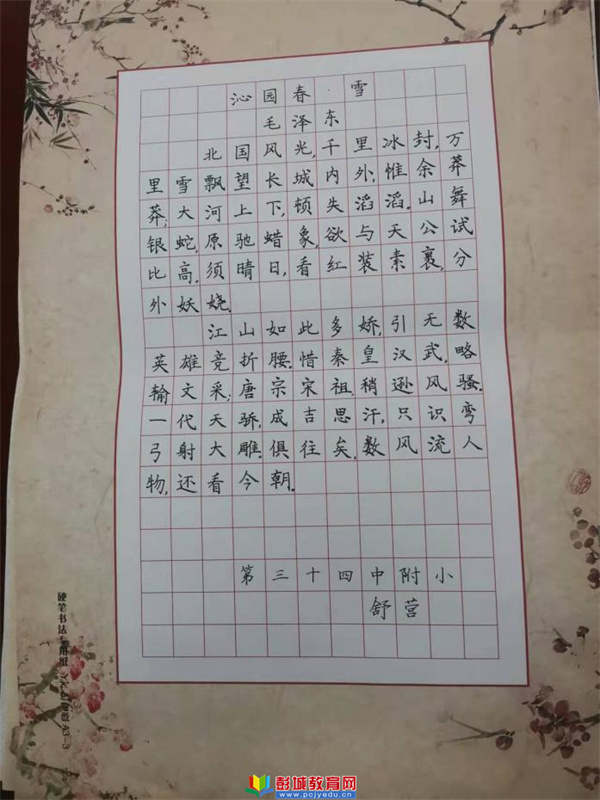 沁园春·雪
毛泽东
北国风光,千里冰封,万
里雪飘.望长城内外,惟余莽
莽;大河上下,顿失滔滔.山舞
银蛇,原驰蜡象,欲与天公试
比高.须晴日,看红装素裹,分
外妖娆.
江山如此多娇,引无数
英雄竞折腰.惜秦皇汉武,略
输文采;唐宗宋祖,稍逊风骚.
一代天骄,成吉思汗,只识弯
弓射大雕.俱往矣,数风流人
物,还看今朝.
第三十四中附小
舒营
硬笔书法
A3-3
彭城教育网
www.pcjyedu.cn